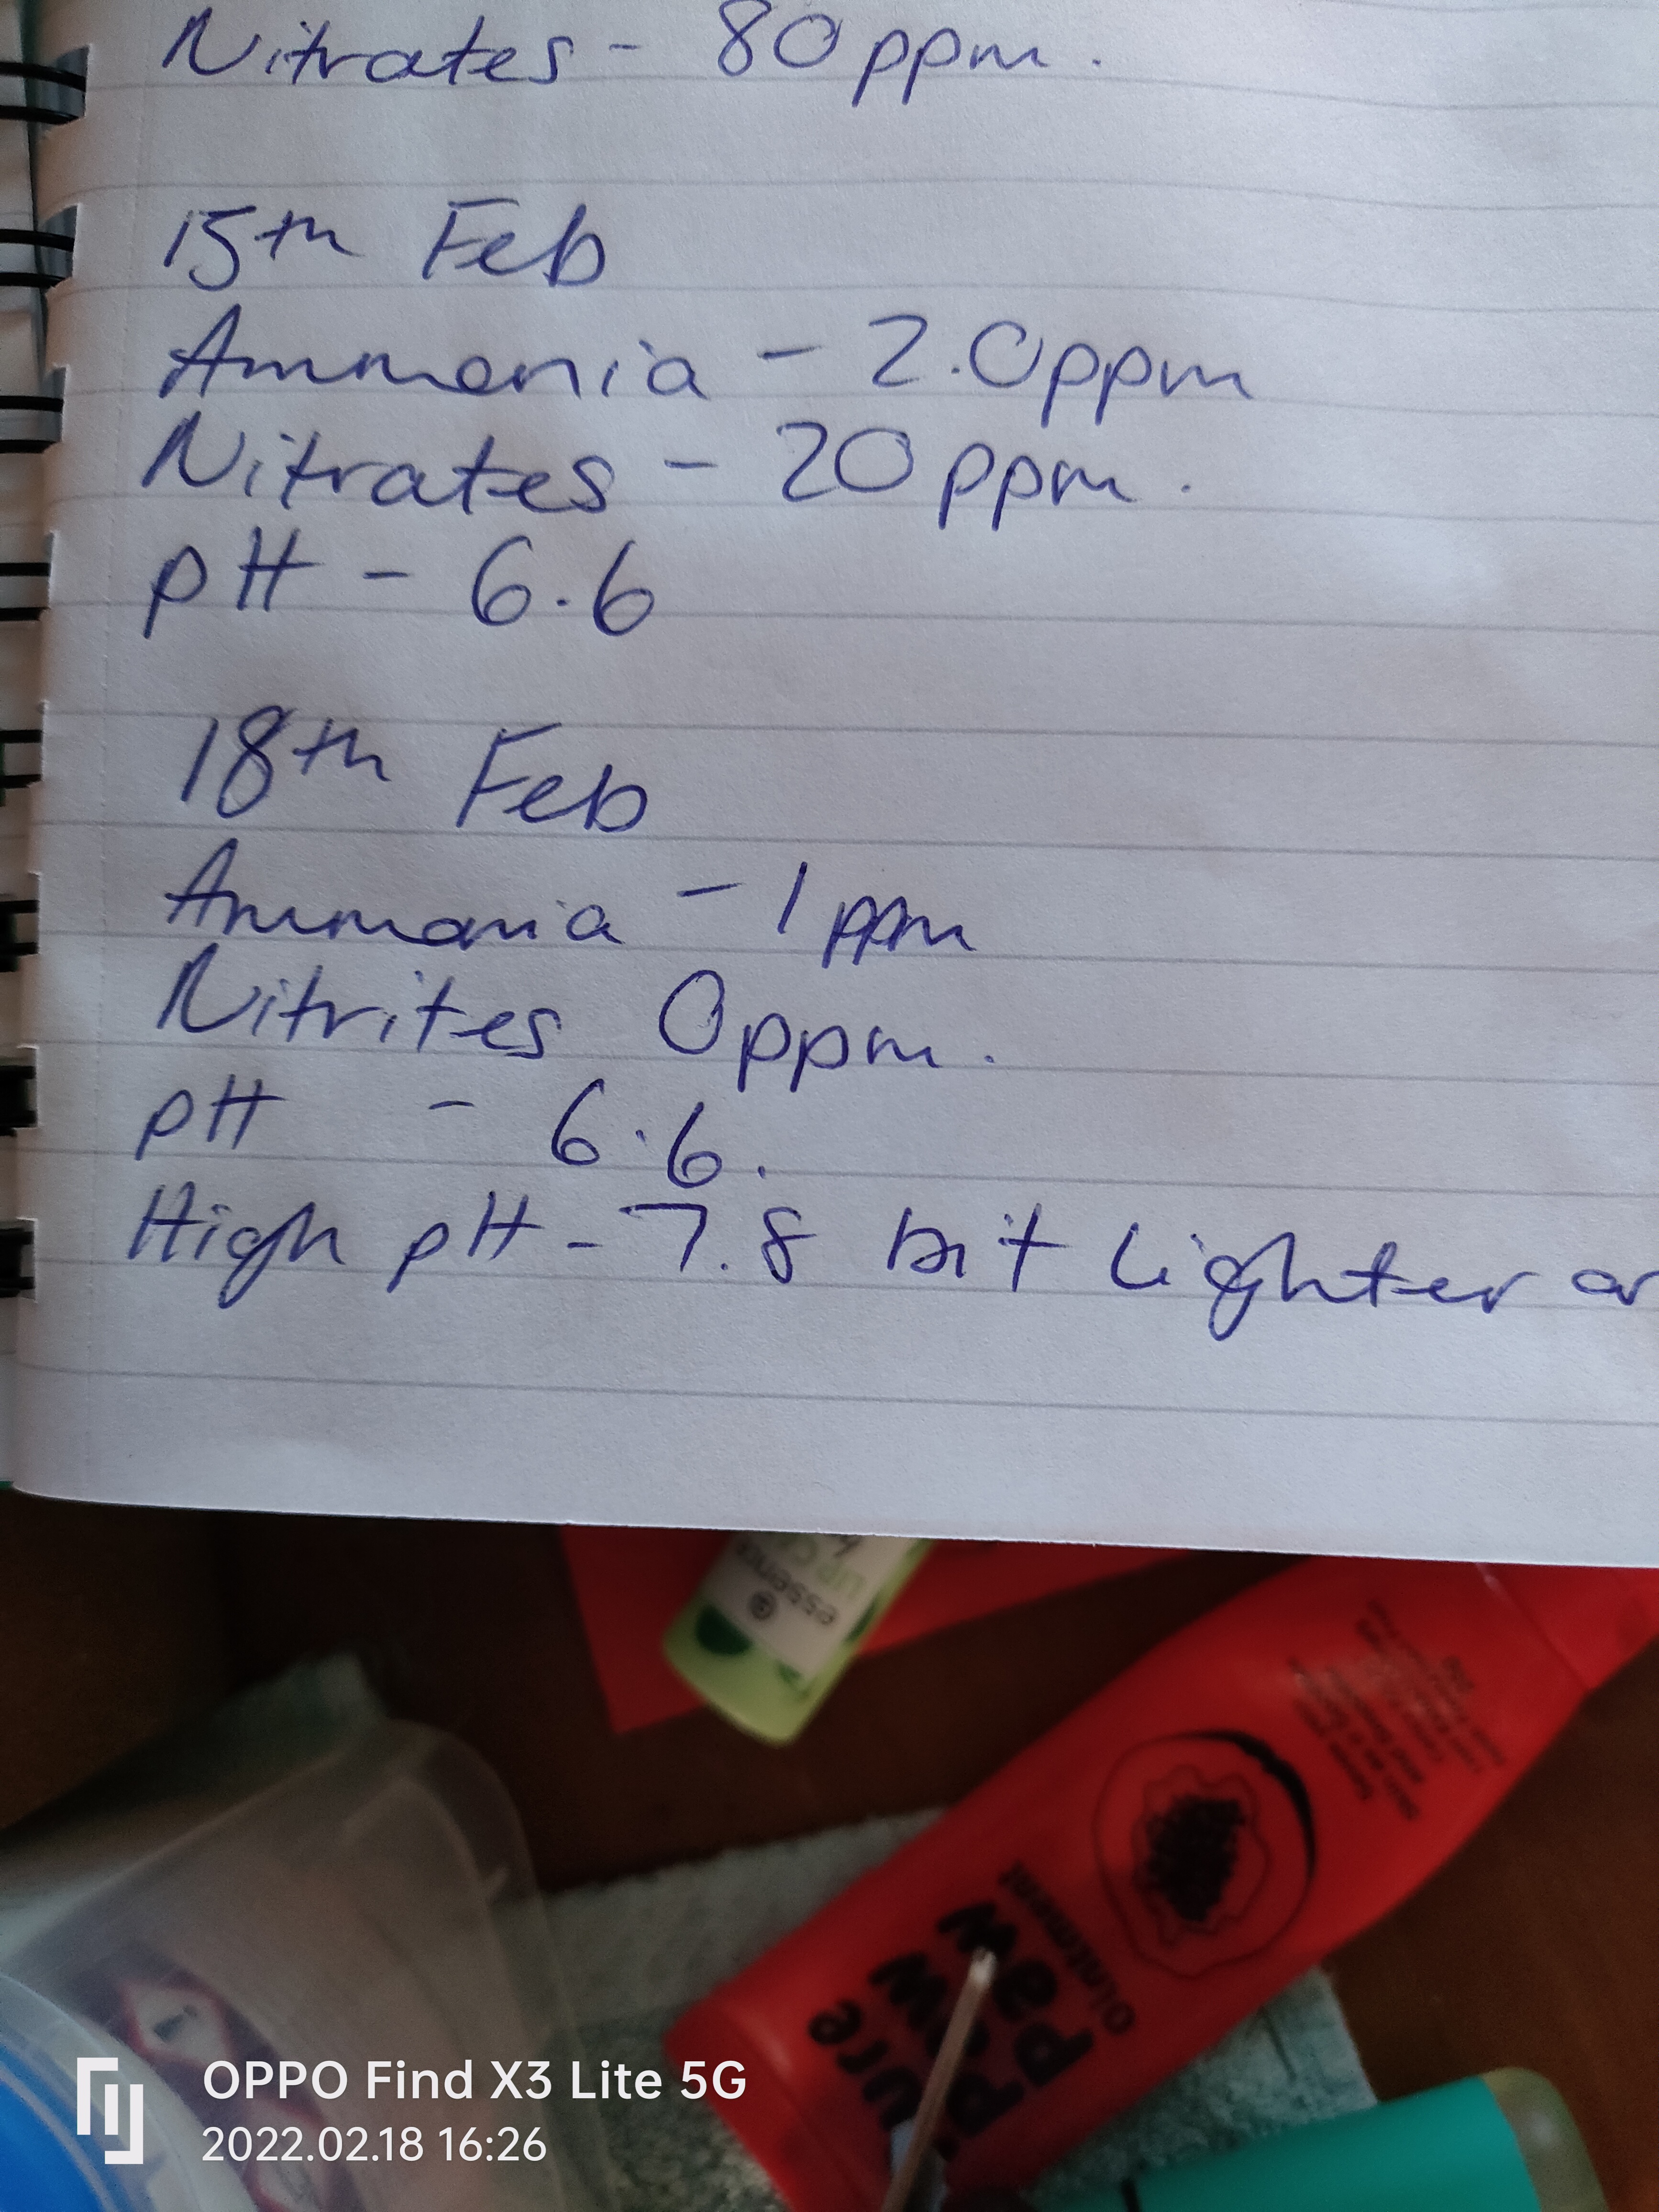 Nitrates - 80ppm.
15th Feb
Ammonia - 2.0ppm
Nitrates - 20ppm.
pH - 6.6
18th Feb
Ammonia - 1ppm
Nitrites 0ppm.
pH - 6.6.
High pH - 7.8 bit Lighter or
essence
Pure
Paw
Paw
Ointment
OPPO Find X3 Lite 5G
2022.02.18 16:26